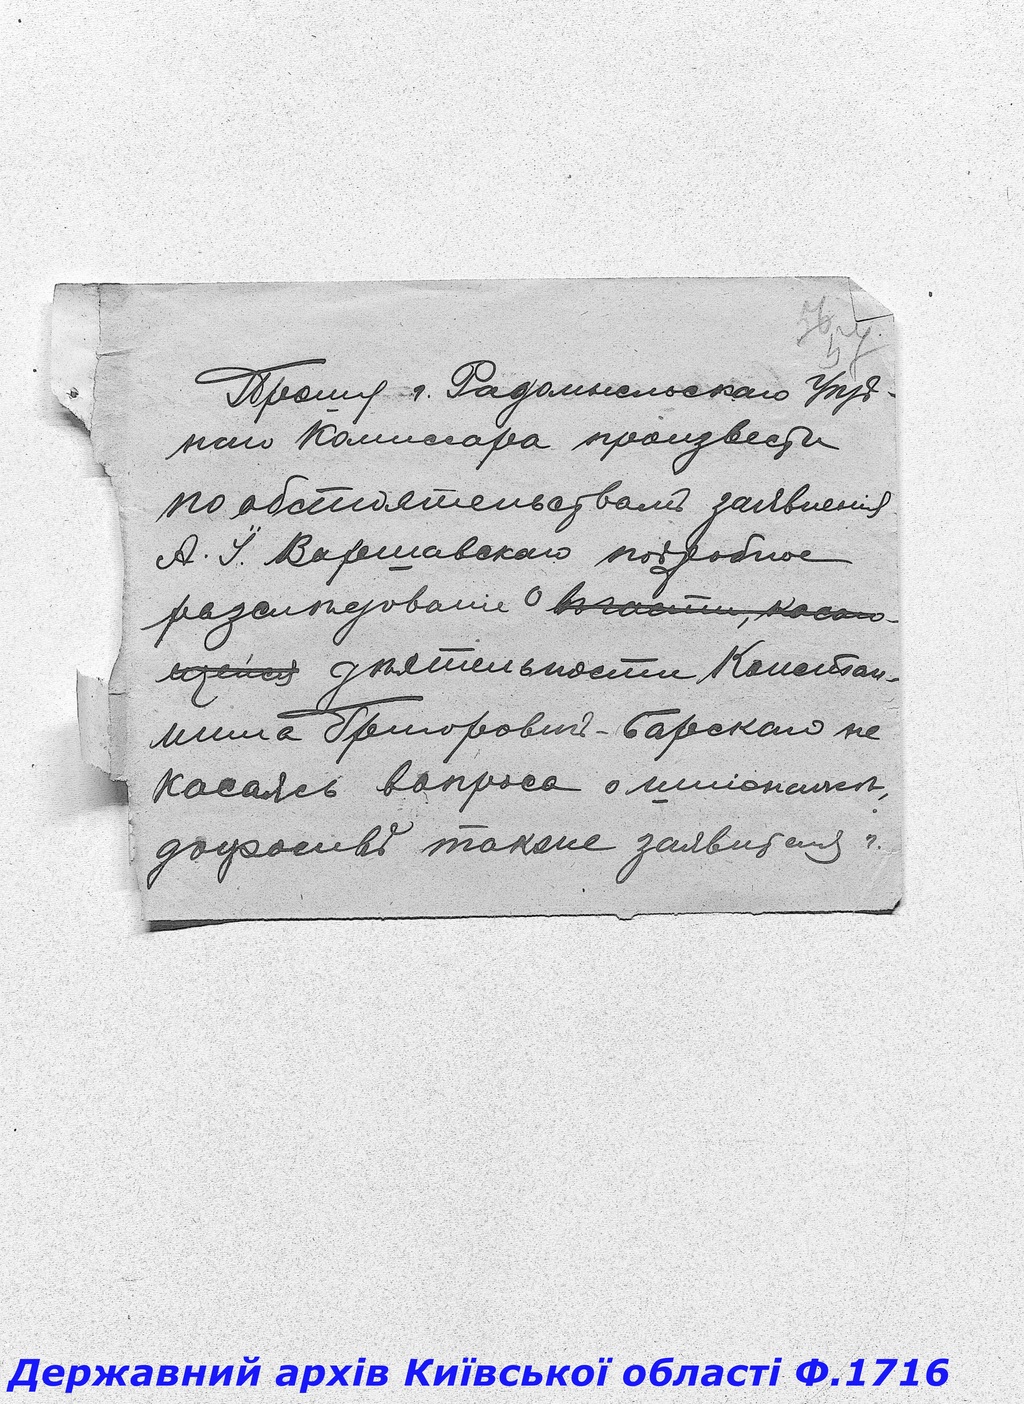 Прошу г. Радомысльскаго Уѣзд-
наго Комиссара произвести
по обстоятельствамъ заявления
А. І. Варшавскаго подробное
разслѣдованіе о въ части, касаю-
щейся дѣятельности Констан-
тина Григоровичъ-Барскаго не
касаясь вопроса о шпіонажѣ,
допросивъ также заявителя г.
Державний архів Київської області Ф.1716